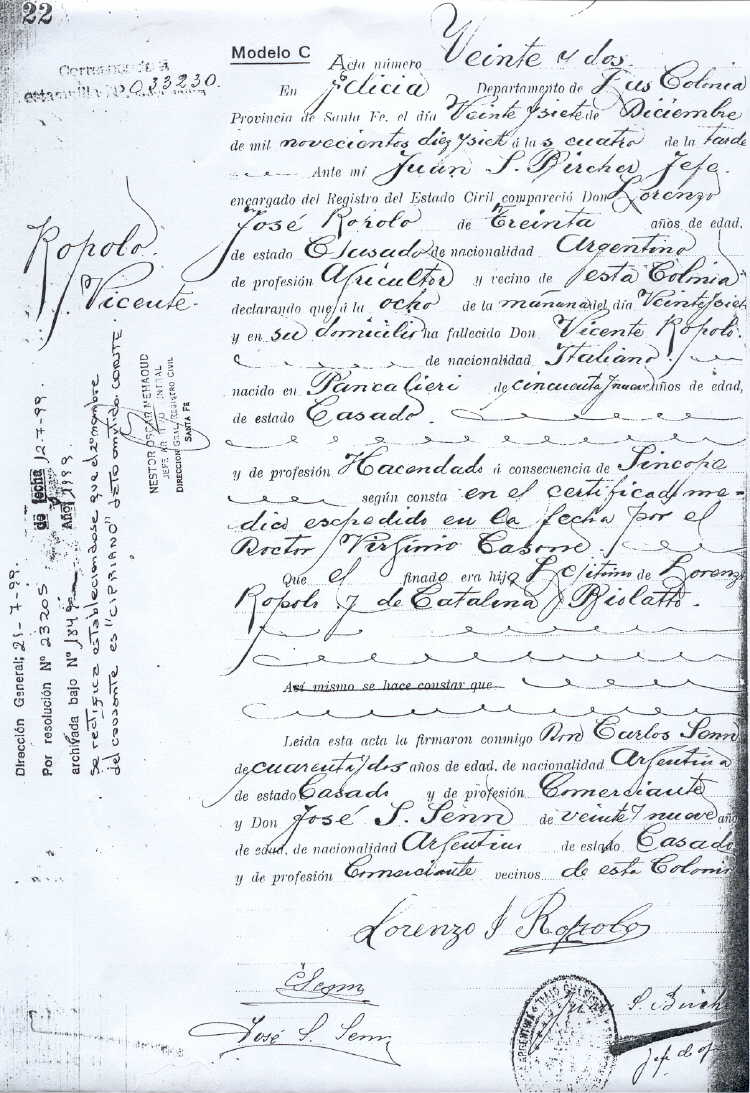 22
Corresponde a
estampilla Nº 033230.
Modelo C Acta número Veinte y dos.
En Felicia Departamento de Las Colonia
Provincia de Santa Fe, el día Veinte y siete de Diciembre
de mil novecientos diez y siete á la s cuatro de la tarde
Ante mi Juan S. Bircher Jefe
encargado del Registro del Estado Civil compareció Don Lorenzo
José Ropolo de Treinta años de edad,
de estado Casado de nacionalidad Argentino
de profesión Agricultor y vecino de esta Colonia
declarando que á la ocho de la mañana del día Veinte y siete
y en su domicilio ha fallecido Don Vicente Ropolo.
de nacionalidad Italiano
nacido en Pancalieri de cincuenta y nueve años de edad,
de estado Casado.
y de profesión Hacendado á consecuencia de Sincope
según consta en el certificado me-
dico espedido en la fecha por el
Doctor Virginio
Que el finado era hijo Legitimo de Lorenzo
Ropolo y de Catalina Riolatto.
Así mismo se hace constar que
Leida esta acta la firmaron conmigo Don Carlos Senn
de cuarenta y dos años de edad, de nacionalidad Argentina
de estado Casado y de profesión Comerciante
y Don José S. Senn de veinte y nueve año
de edad, de nacionalidad Argentino de estado Casado
y de profesión Comerciante vecinos de esta Coloni
Lorenzo J Ropolo
CSenn
José S. Senn
Ropolo
Vicente.
Dirección General; 21-7-99.
Por resolución Nº 23205 de fecha 12-7-99.
archivada bajo Nº 1849 Año 1999
se rectifica estableciendose que el 2º nombre
del causante es "CIPRIANO" dato omitido. CONSTE.
NESTOR OSCAR MEHAOUD
DIRECCION GRAL. REGISTRO CIVIL
SANTA FE